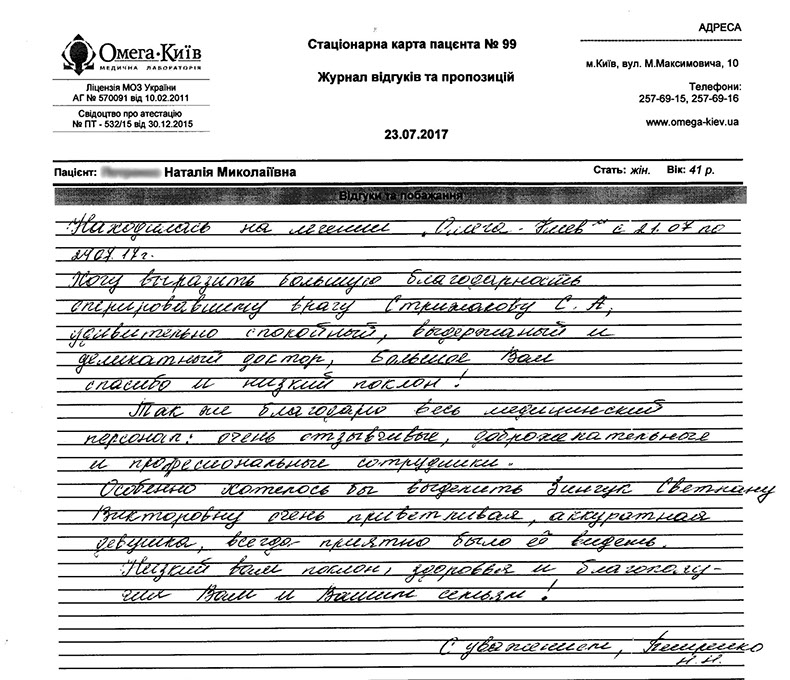 Омега·Київ
МЕДИЧНА ЛАБОРАТОРІЯ
Ліцензія МОЗ України
АГ № 570091 від 10.02.2011
Свідоцтво про атестацію
№ ПТ - 532/15 від 30.12.2015
Стаціонарна карта пацєнта № 99
Журнал відгуків та пропозицій
23.07.2017
АДРЕСА
м.Київ, вул. М.Максимовича, 10
Телефони:
257-69-15, 257-69-16
www.omega-kiev.ua
Пацієнт: Наталія Миколаїівна Стать: жін. Вік: 41 р.
Відгуки та побажання
Находилась на лечении „Омега - Киев" с 21.07 по
24.07.17г.
Хочу выразить большую благодарность
оперировавшему врачу Стрижакову С. А,
удивительно спокойный, выдержаный и
деликатный доктор, Большое Вам
спасибо и низкий поклон!
Так же благодарю весь медицинский
персонал: очень отзывчивые, доброжелательные
и професиональные сотрудники.
Особенно хотелось бы выделить Зинчук Светлану
Викторовну очень приветливая, аккуратная
девушка, всегда приятно было её видеть.
Низкий вам поклон, здоровья и благополу-
чия Вам и Вашим семьям!
С уважением,
Н.Н.